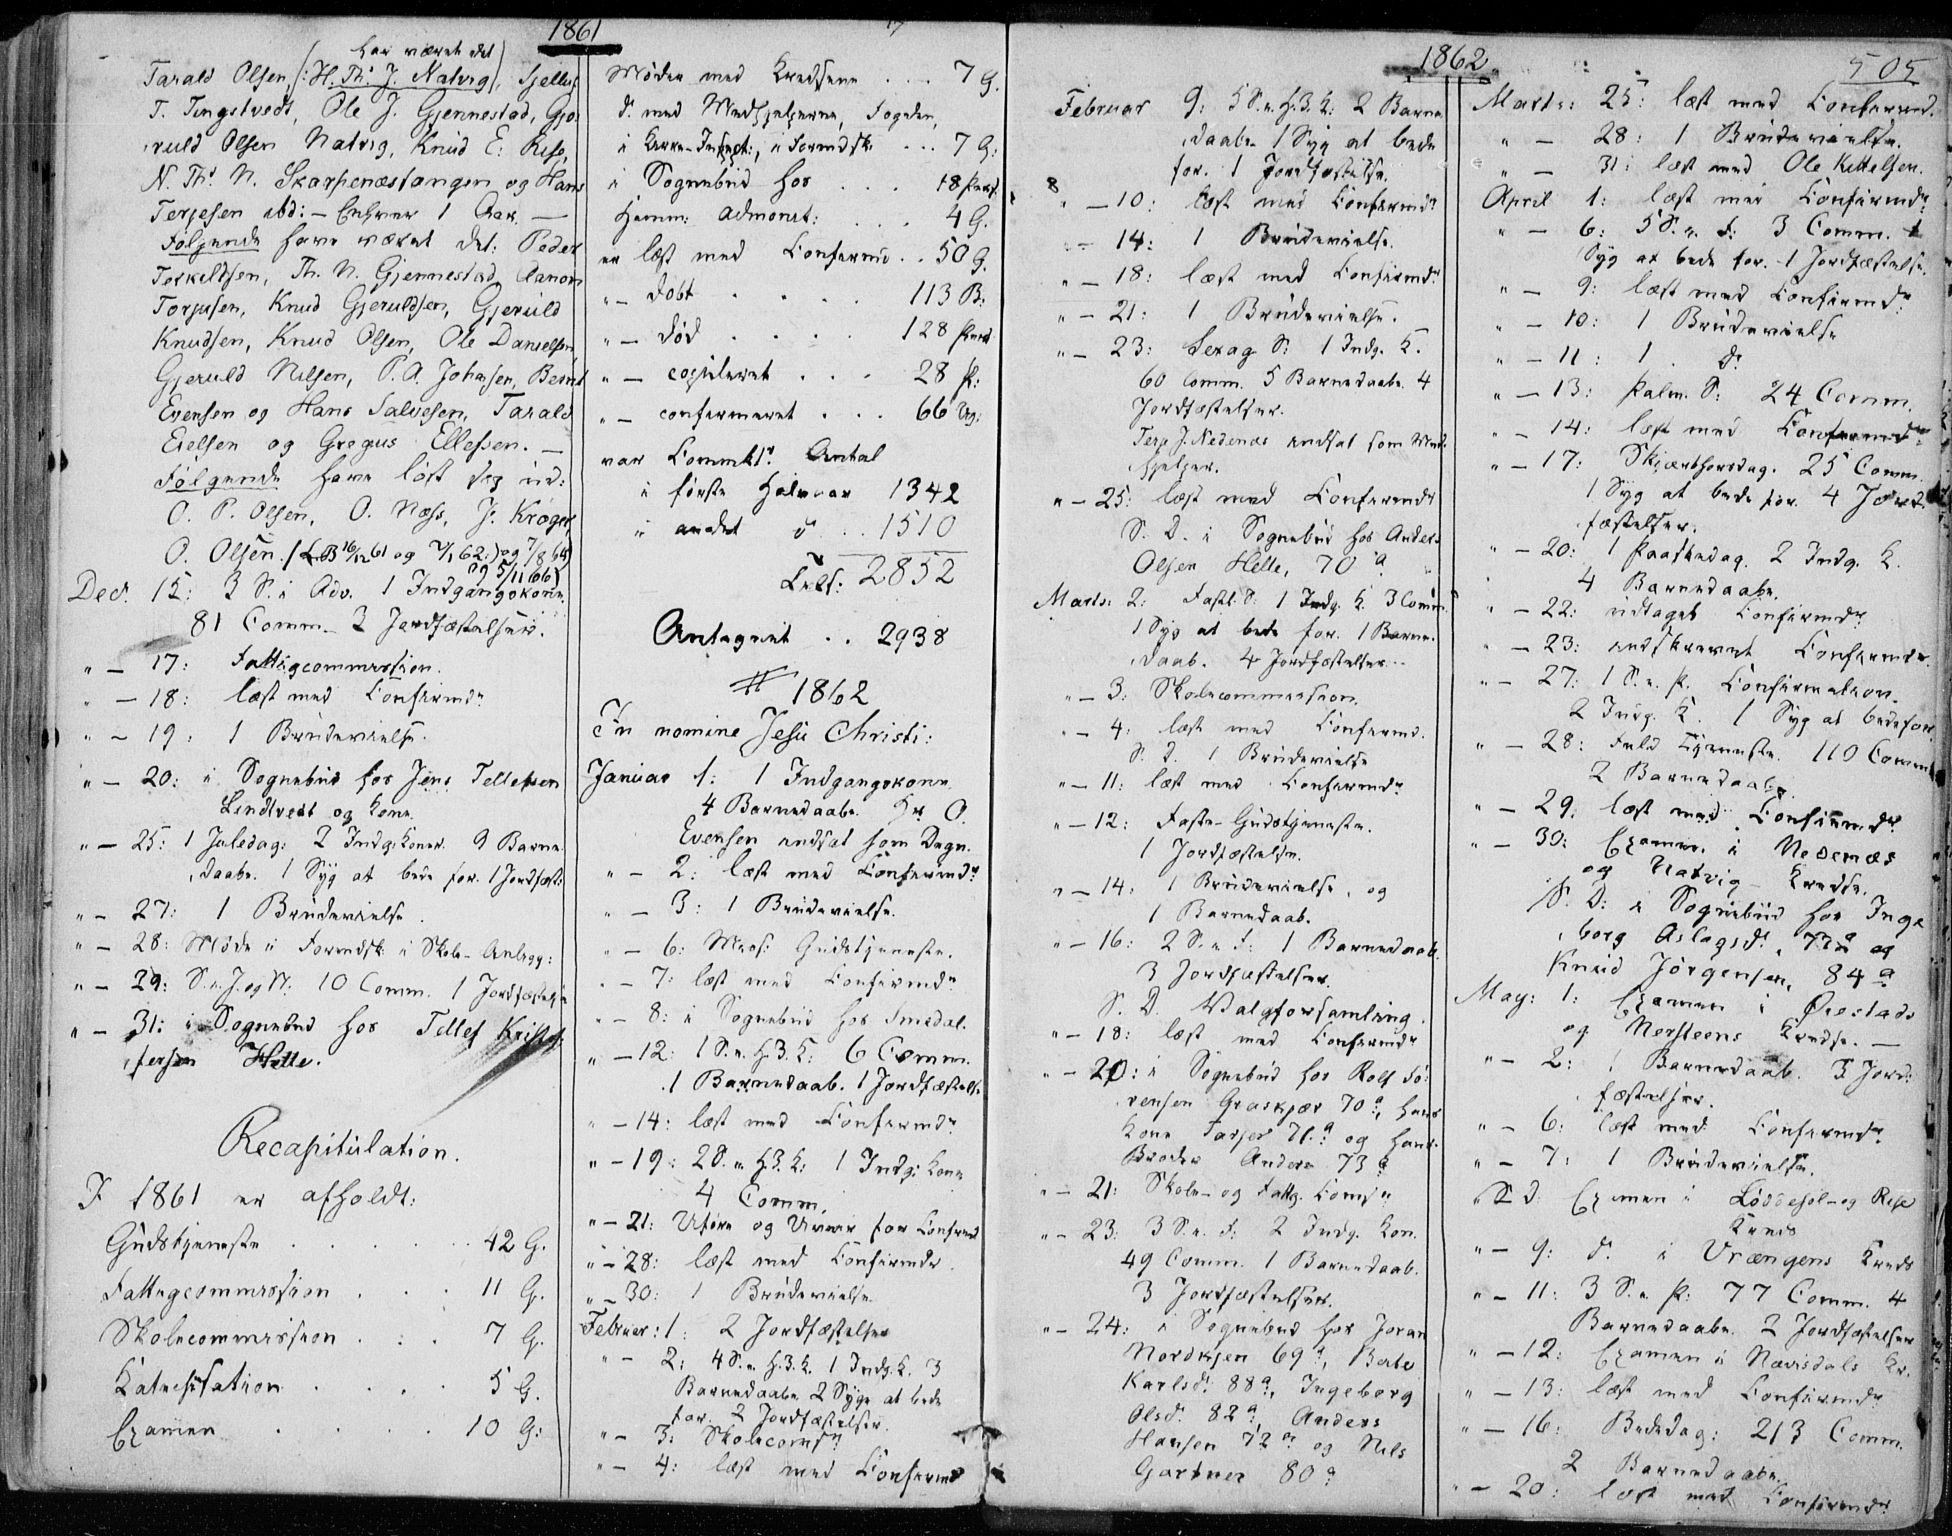 1861
har været det
Tarald Olsen, /: H. Th. J. Natvig /, Tjellef
T. Tingstvedt, Ole J. Gjennestad, Gje-
ruld Olsen Natvig, Knud E. Rise,
N. Th. N. Skarpenæstangen og Hans
Terjesen ibd: – Enhver 1 Aar. –
Følgende have været det: Peder
Terkeldsen, Th. N. Gjennestad, Aanon
Torjusen, Knud Gjeruldsen, Gjeruld
Knudsen, Knud Olsen, Ole Danielsen
Gjeruld Nilsen, P. A. Johnsen, Bernt
Evensen og Hans Salvesen, Tarald
Eielsen og Gregus Ellefsen. –
Følgende have löst sig ud:
O. P. Olsen, O. Næss, J. Krøger,
O. Olsen. (LB 16/12 61 og 7/1 62:) og 7/8 64)
og 5/11 66)
Decr 15: 3 S. i Adv. 1 Indgangskone.
81 Comm. 2 Jordfæstelser.
" – 17: Fattigcommission.
" – 18: læst med Confirmdr
" – 19: 1 Brudevielse.
" – 20: i Sognebud hos Jens Tellefsen
Lindtvedt og Kone
" – 25: 1 Juledag: 2 Indg: Koner. 9 Barne-
daabe. 1 Syg at bede for. 1 Jordfæst:
" – 27: 1 Brudevielse.
" – 28: Møde i Formdsk: i Skole-Anligg:
" – 29: S. e. J. og N. 10 Comm. 1 Jordfæstelse
" – 31: i Sognebud hos Tellef Kristof-
fersen Helle.
Recapitulation.
I 1861 er afholdt:
Gudstjeneste . . . . . 42 G.
Fattigcommission . . . 11 G.
Skolecommission . . . 7 G.
Katechisation . . . . 5 G.
Examen . . . . 10 G:
Møder med Kredsene . . . 7 G.
do med Medhjelperne, Fogden,
i Kirke-Inspect:, i Formdsk: . . . 7 G:
i Sognebud hos . . . 18 Pers.
Hemm: admonit: . . . 4 G.
er læst med Confirmd . . 50 G.
" – døbt . . . . 113 B:
" – død . . . . 128 Pers
" – copuleret . . . 28 P:
" – confirmeret . . . 66 Ug:
var Commkt. Antal
i første Halvaar 1342
i andet do . . 1510
Tils: 2852
Antegnet . . 2938
1862
In nomine Jesu Christi:
Januar 1: 1 Indgangskone
4 Barnedaabe. Hr O.
Evensen indsat som Degn.
" – 2: læst med Confirmdr
" – 3: 1 Brudevielse.
" – 6: Miss: Gudstjeneste.
" – 7: læst med Confirmdr
" – 8: i Sognebud hos Smedal.
" – 12: 1 S. e. H. 3. K: 6 Comm.
1 Barnedaab. 1 Jordfæstelse
" – 14: læst med Confirmdr
" – 19: 2 S. e. H. 3. K: 1 Indg: Kone
4 Comm.
" – 21: Uføre og Uveir for Confirmd
" – 28: læst med Confirmdr.
" – 30: 1 Brudevielse
Februar: 1: 2 Jordfæstelser
" – 2: 4 S. e. H. 3. K. 1 Indg. K. 3
Barnedaabe 2 Syge at bede
for. 2 Jordfæstelser.
" – 3: Skolecomsn
" – 4: læst med Confirmd
1862
505
Februar 9: 5 S. e. H. 3. K: 2 Barne-
daabe 1 Syg at bede
for. 1 Jordfæstelse.
" – 10: læst med Confirmdr
" – 14: 1 Brudevielse.
" – 18: læst med Confirmdr
" – 21: 1 Brudevielse.
" – 23: Sexag S: 1 Indg. K.
60 Comm. 5 Barnedaabe. 4
Jordfæstelser.
Terje J. Nedenæs indsat som Med-
hjelper.
" – 25: læst med Confirmdr
S. D. i Sognebud hos Anders
Olsen Helle, 70 a.
Marts: 2: Fastel. S: 1 Indg. K. 3 Comm.
1 Syg at bede for. 1 Barne-
daab. 4 Jordfæstelser.
" – 3: Skolecommission.
" – 4: læst med Confirmd.
S. D. 1 Brudevielse
" – 11: læst med Confirmdr
" – 12: Faste-Gudstjeneste.
1 Jordfæstelse.
" – 14: 1 Brudevielse, og
1 Barnedaab.
" – 16: 2 S. e. F: 1 Barnedaab.
3 Jordfæstelser.
S. D. Valgforsamling.
" – 18: læst med Confirmdr
" – 20: i Sognebud hos Rolf Sö-
rensen Graskjær 70 a., hans
Kone Tarjer 71. a og hans
Broder Anders 73 a
" – 21: Skole- og Fattg. Comsn
" – 23: 3 S. e. F: 2 Indg. Kon.
49 Comm. 1 Barnedaab.
3 Jordfæstelser.
" – 24: i Sognebud hos Joran
Nordkjen 69 a, Berte
Karlsd. 88 a, Ingeborg
Olsd. 82 a, Anders
Hansen 72 a og Nils
Gartner 80 a
Marts: 25: læst med Confirmd.
" – 28: 1 Brudevielse.
" – 31: læst med Ole Kittelsen.
April 1: læst med Confirmdr
" – 6: 5 S. e. F: 3 Comm. 1
Syg at bede for. 1 Jordfæstelse.
" – 9: læst med Confirmdr
" – 10: 1 Brudevielse
" – 11: 1 do
" – 13: Palm. S: 24 Comm.
" – 14: læst med Confirmdr
" – 17: Skjærthorsdag. 25 Comm.
1 Syg at bede for. 4 Jord-
fæstelser.
" – 20: 1 Paaskedag. 2 Indg. K.
4 Barnedaabe.
" – 22: udtaget Confirmdr
" – 23: indskrevet Confirmdr.
" – 27: 1 S. e. P. Confirmation.
2 Indg. K. 1 Syg at bede for.
" – 28: Fuld Tjeneste. 110 Comm
2 Barnedaabe.
" – 29: læst med Confirmdr
" – 30: Examen i Nedenæs
og Natvig Kredse.
S. D: i Sognebud hos Inge-
borg Aslagsd., 77 a og
Knud Jörgensen, 84 a
May: 1: Examen i Örestads
og Mersteens Kredse. –
" – 2: 1 Barnedaab. 3 Jord-
fæstelser.
" – 6: læst med Confirmdr
" – 7: 1 Brudevielse.
S. d. Examen i Løddesøl- og Rise
Kreds
" – 9: do i Vrængens Kreds
" – 11: 3 S. e. P: 77 Comm. 4
Barnedaabe. 2 Jordfæstelser
" – 12: Examen i Nævisdals Kr.
" – 13: læst med Confirmdr
" – 16: Bededag: 213 Comm.
2 Barnedaabe.
" – 20: læst med Confirmdr